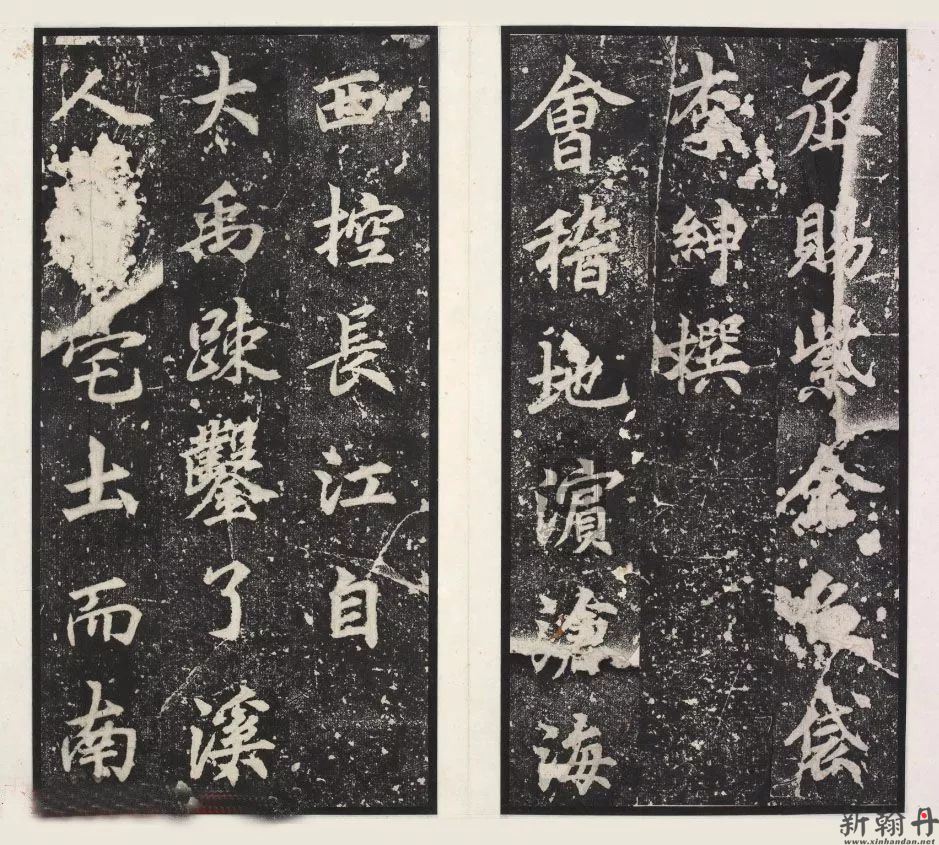 丞賜紫金魚袋
李紳撰
會稽地濱滄海
西控長江自
大禹踈鑿了溪
人宅土而南
新翰丹
www.xinhandan.net